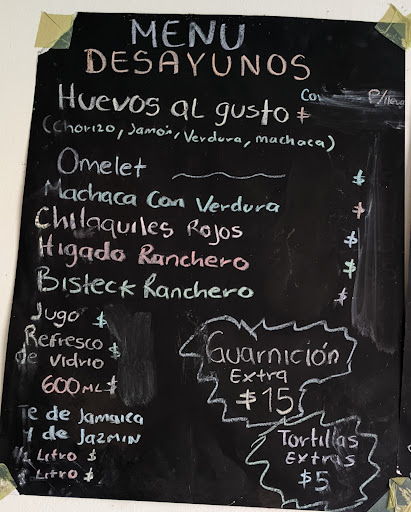 MENU
DESAYUNOS
Huevos al gusto $
(Chorizo, Jamón, Verdura, machaca)
Omelet $
Machaca Con Verdura $
Chilaquiles Rojos $
Higado Ranchero $
Bisteck Ranchero $
Jugo $
Refresco
de Vidrio $
600 ML $
Te de Jamaica
Y de Jazmin
1/2 Litro $
Litro $
Guarnición
Extra
$15
Tortillas
Extras
$5